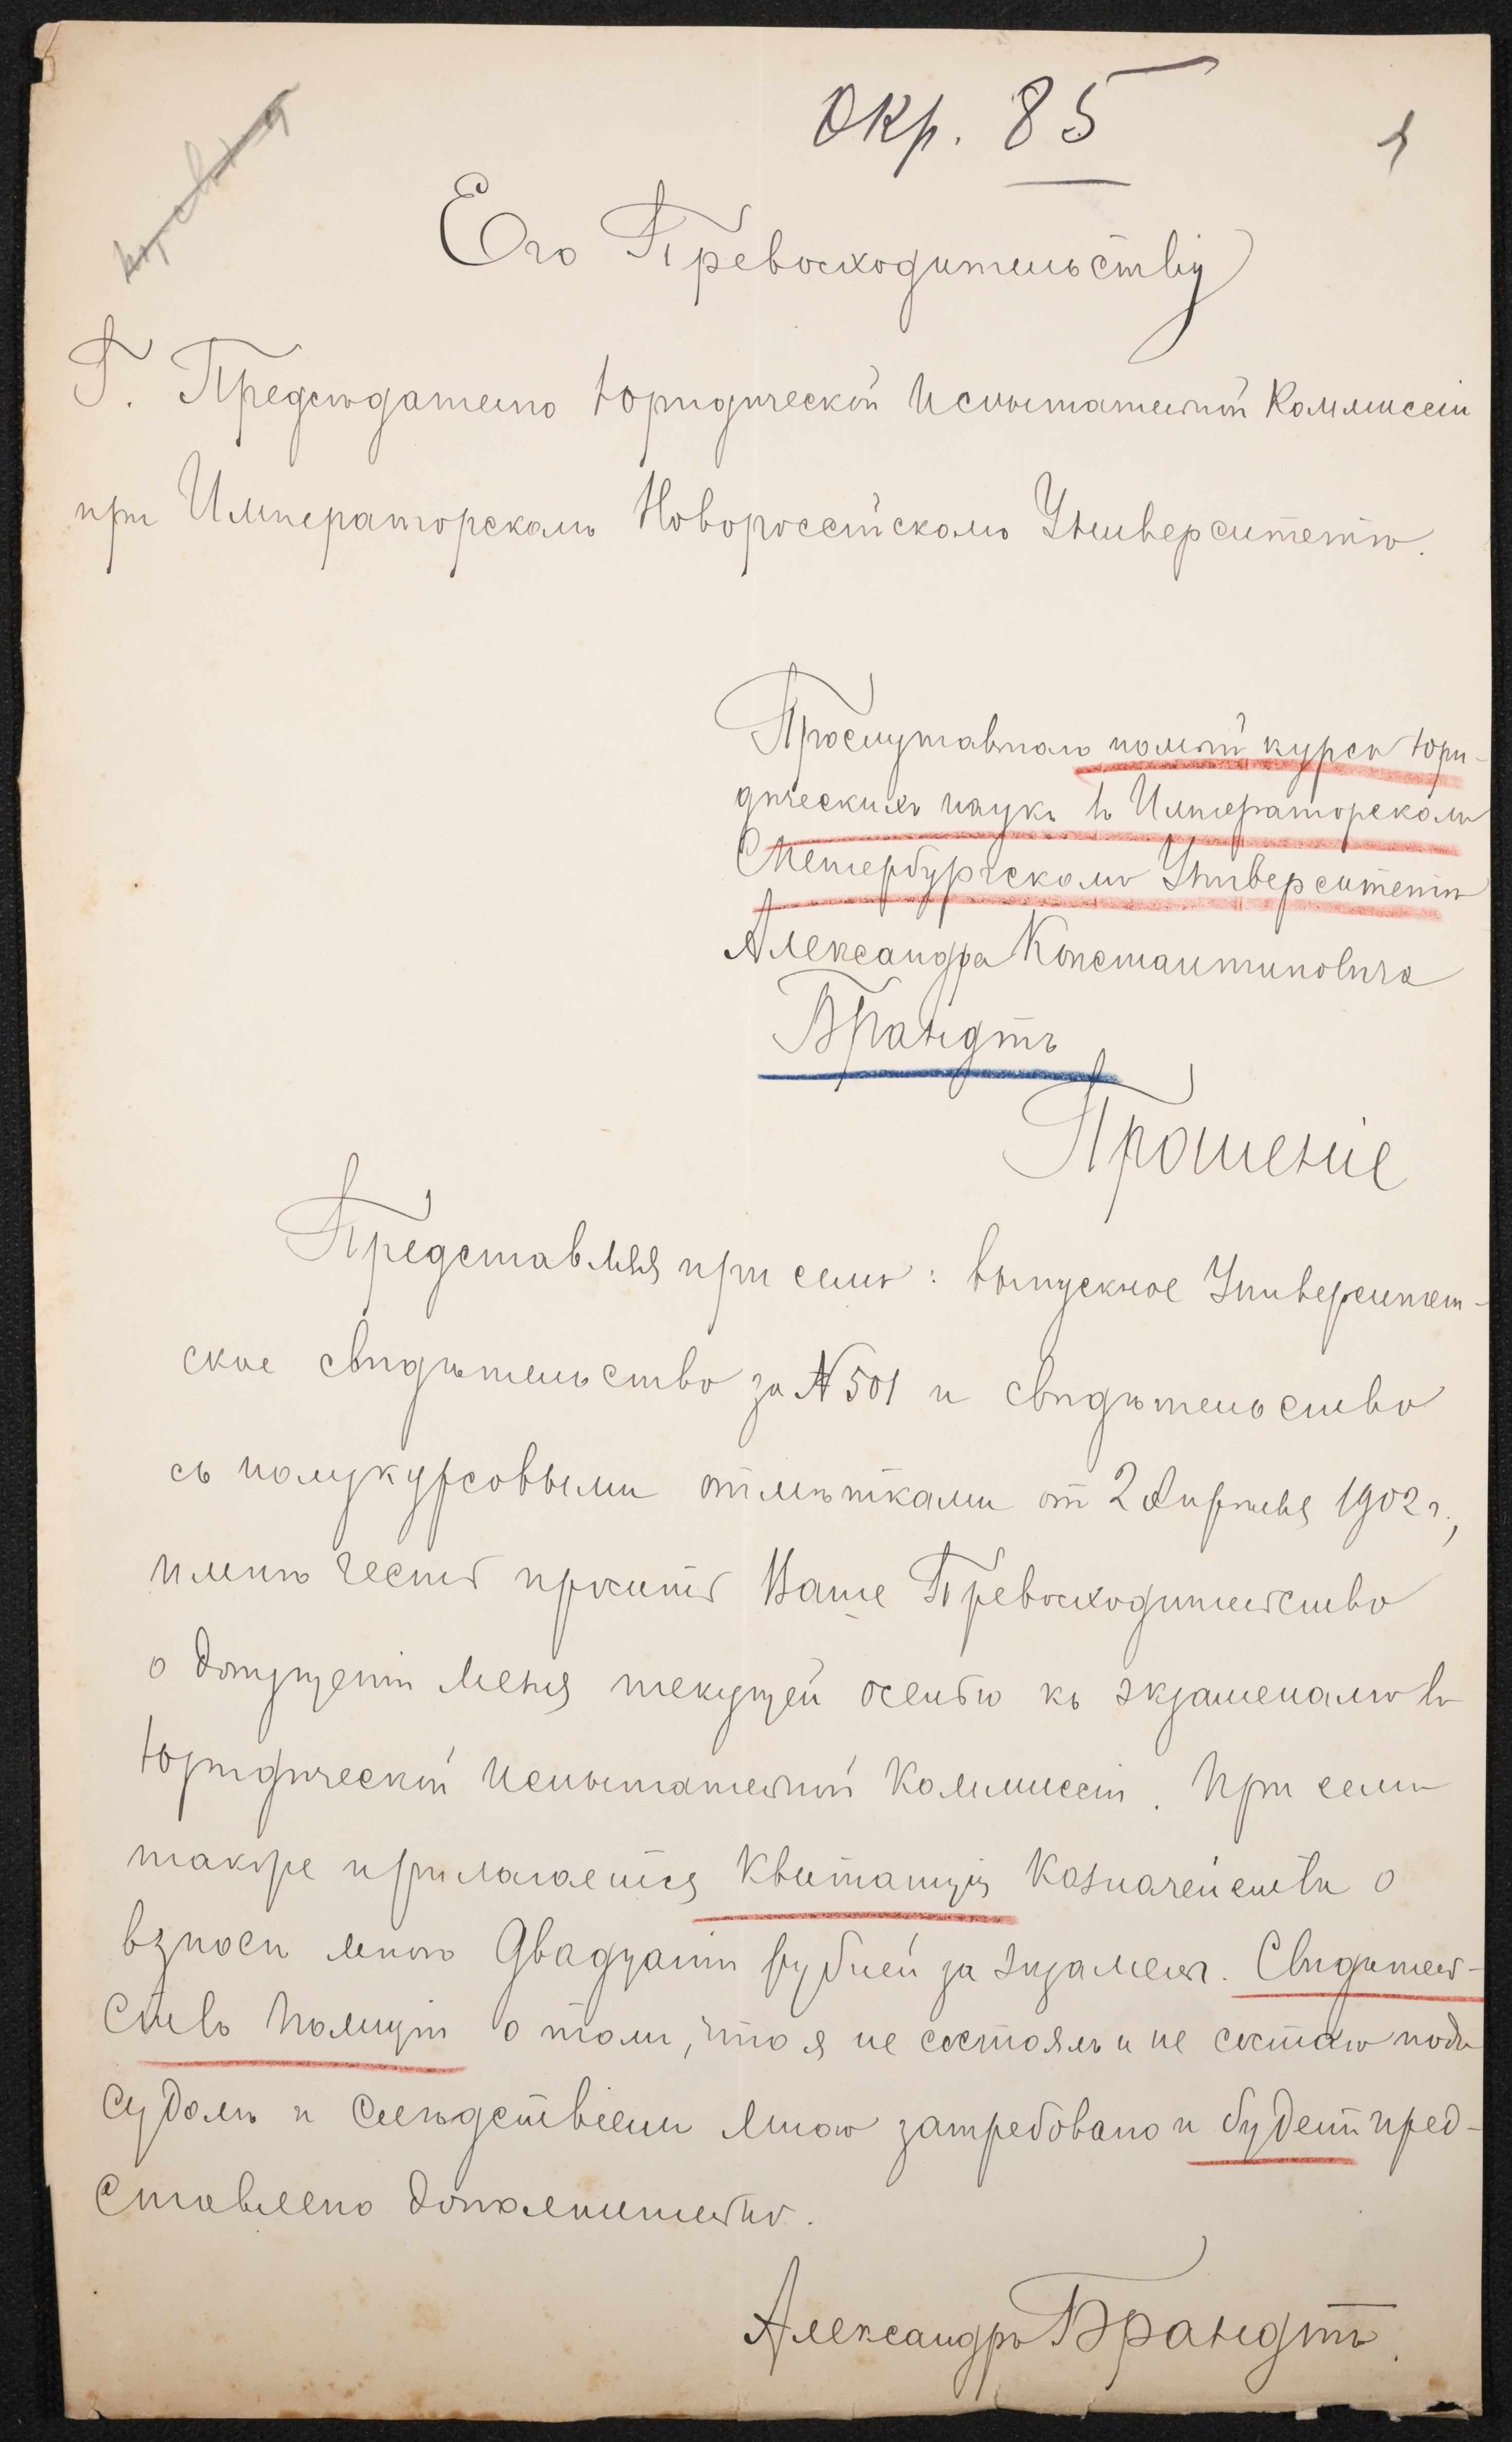 Окр. 85
1
Его Превосходительству
Г. Предсѣдателю Юридической Испытательной Коммиссіи
при Императорскомъ Новороссійскомъ Университетѣ.
Прослушавшаго полный курсъ Юри-
дическихъ наукъ въ Императорскомъ
С.Петербургскомъ Университетѣ
Александра Константиновича
Брандтъ
Прошеніе
Представляя при семъ: выпускное Университет-
ское свидѣтельство за № 501 и свидѣтельство
съ полукурсовыми отмѣтками от 2 Апрѣля 1902 г.,
имѣю честь просить Ваше Превосходительство
о допущеніи меня текущей осенью къ экзаменамъ въ
Юридической Испытательной Коммиссіи. При семъ
также прилагается квитанція Казначейства о
взносѣ мною двадцати рублей за экзаменъ. Свидѣтель-
ство полиціи о томъ, что я не состоялъ и не состою подъ
судомъ и слѣдствіемъ мною затребовано и будетъ пред-
ставлено дополнительно.
Александръ Брандтъ.